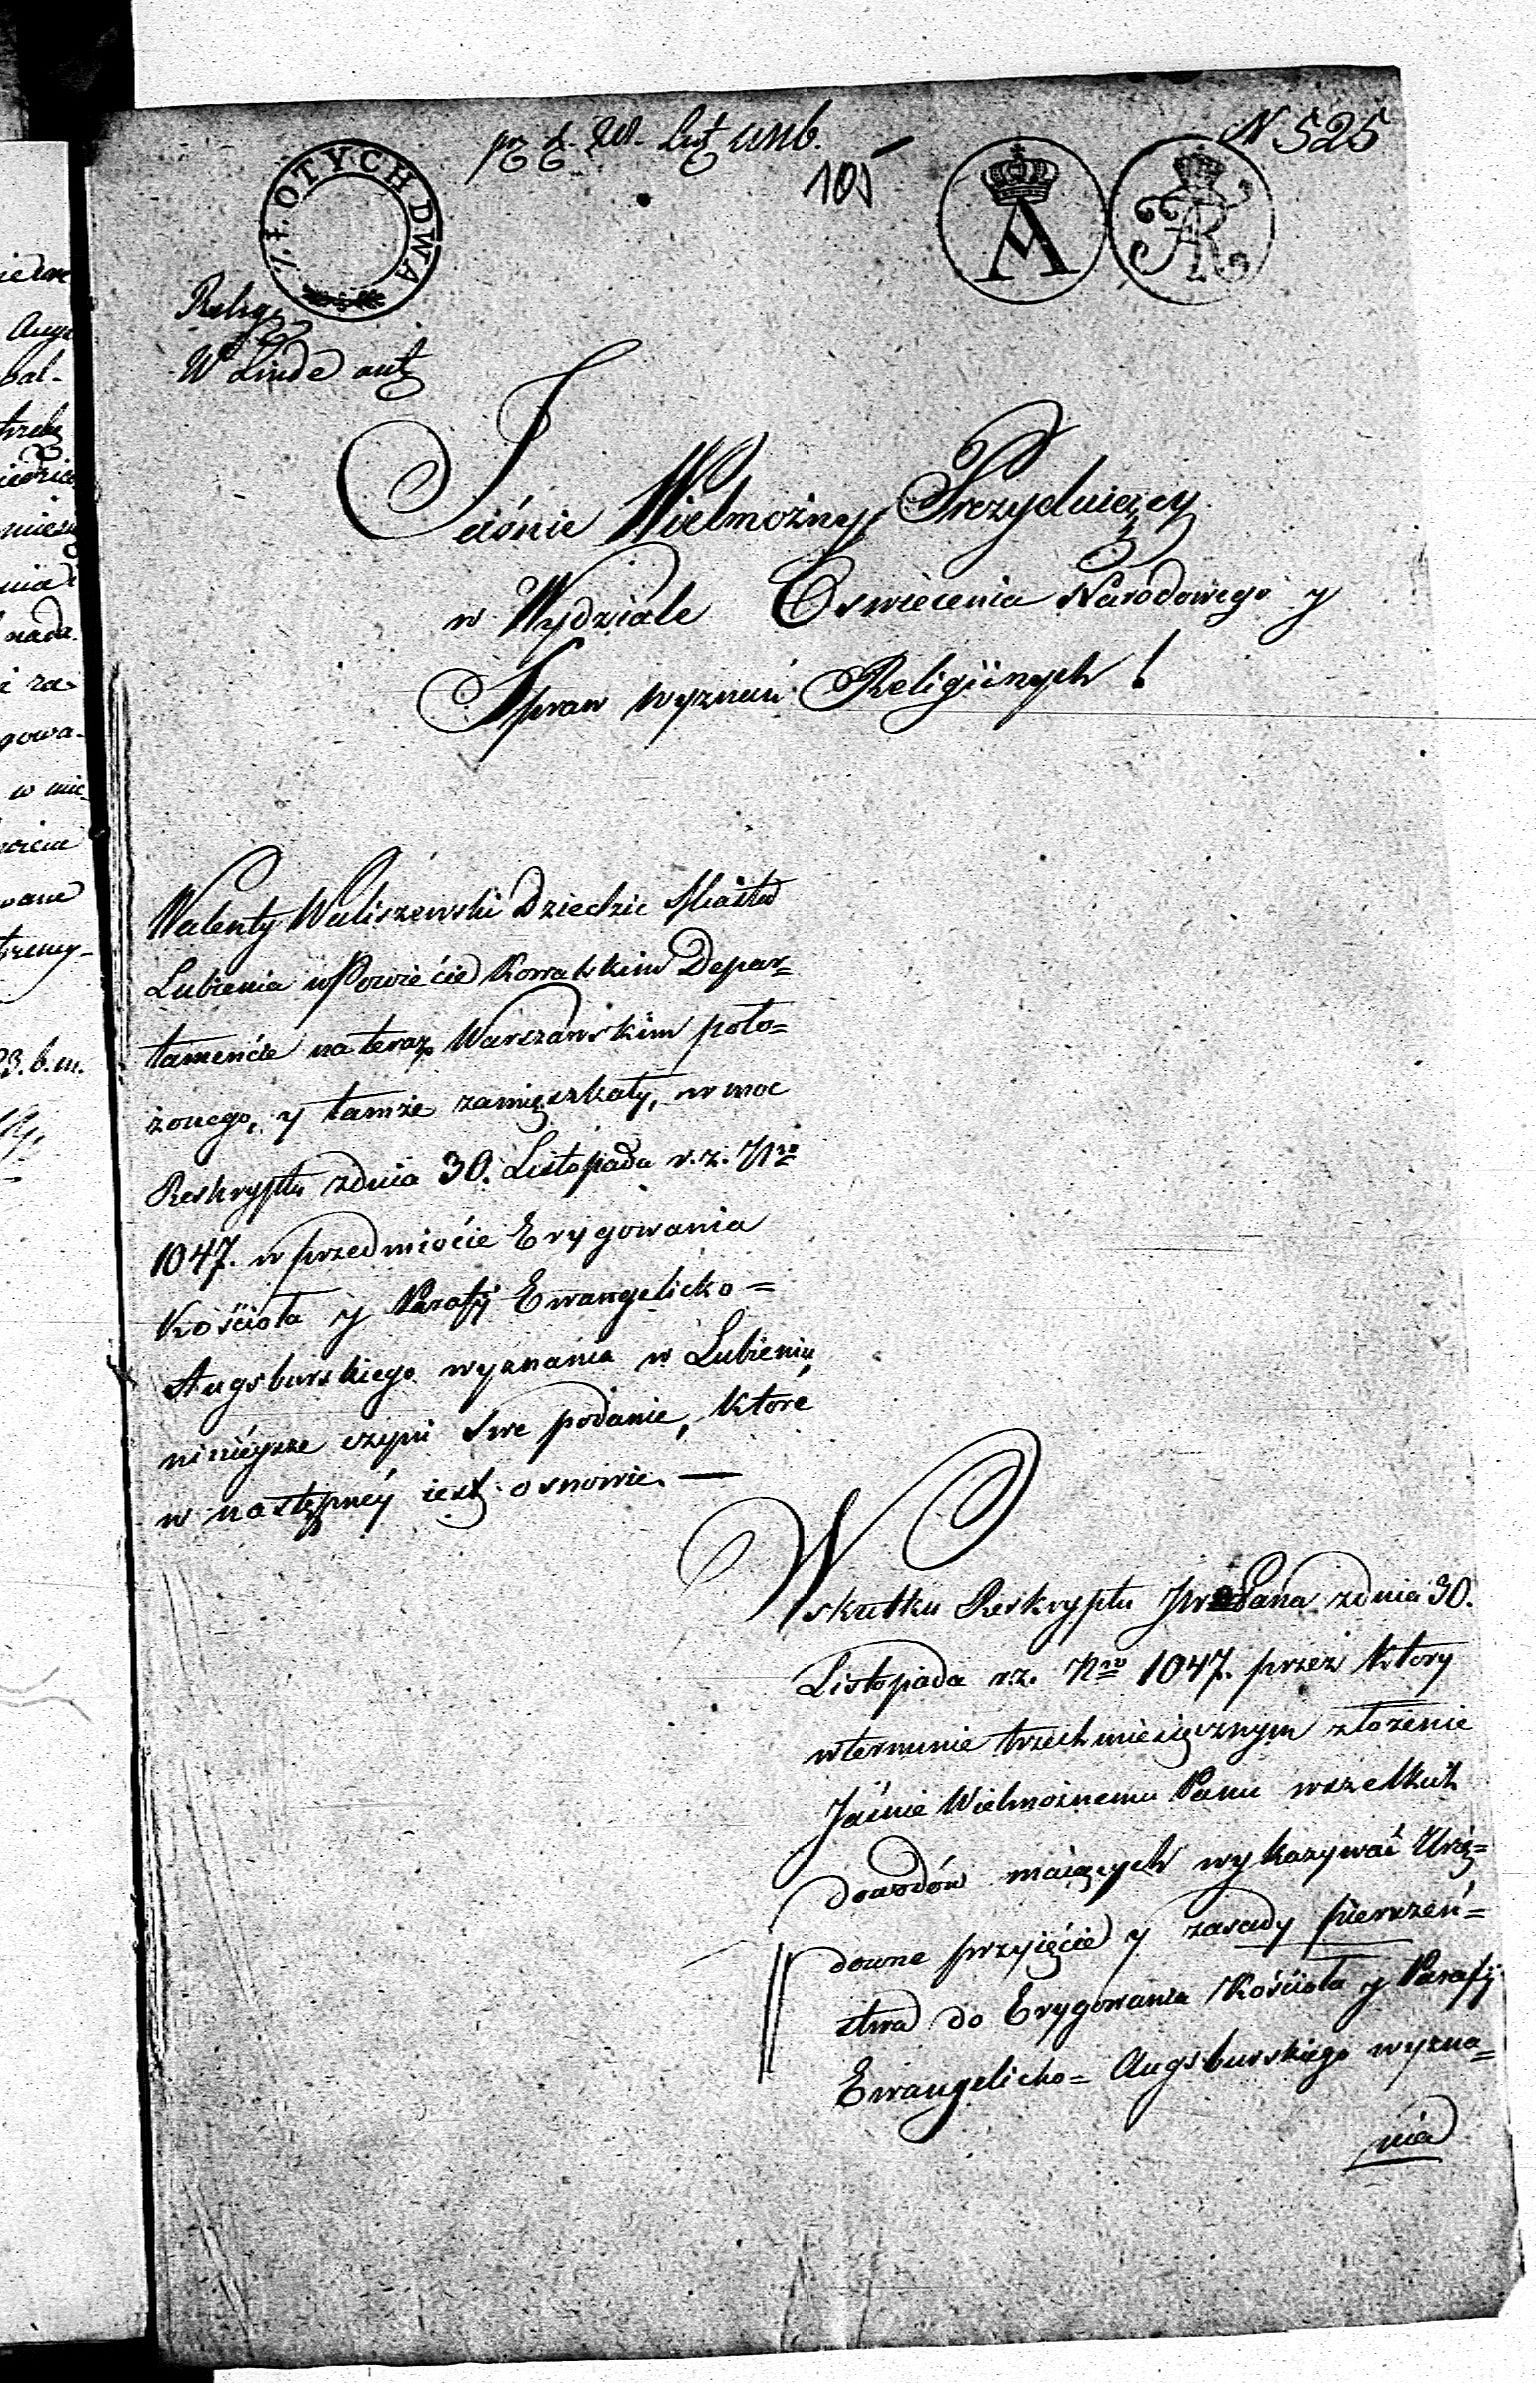 N 525
105
ZŁOTYCH DWA
A
FAR
W Linde
Jaśnie Wielmożny Prezyduiący
w Wydziale Oswiecenia Narodowego y
Spraw wyznań Religijnych!
Walenty Waliszewski Dziedzic Miasta
Lubienia w Powiećie Kowalskim Depar=
tamenćie na teraz Warszawskim poło=
żonego, y tamże zamięszkały, w moc
Reskryptu zdnia 30. Listopada r. z. Nro
1047. w przedmioćie Erygowania
Kośćioła y Parafij Ewangelicko=
Augsburskiego wyznania w Lubieniu,
ninieysze czyni swe podanie, które
w następnéy iest osnowie. —
W skutku Reskryptu JW Pana zdnia 30.
Listopada r.z. Nro 1047. przez ktory
w terminie trzechmiesięcznym złożenie
Jaśnie Wielmożnemu Panu wszelkich
dowodów maiących wykazywać Urzę=
downe przyięćie y zasady pierwszeń=
stwa do Erygowania Kośćioła y Parafij
Ewangelicko= Augsburskiego wyzna=
nia